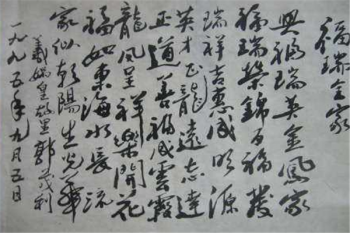 福瑞全家
兴福瑞英金凤家
福瑞荣锦百福发
瑞祥吉惠成明源
英才正龙远志达
正道善福成云霞
龙凤呈祥乐开花
福如东海水长流
家似朝阳生光华
羲皇故里郭茂利
一九九五年九月五日